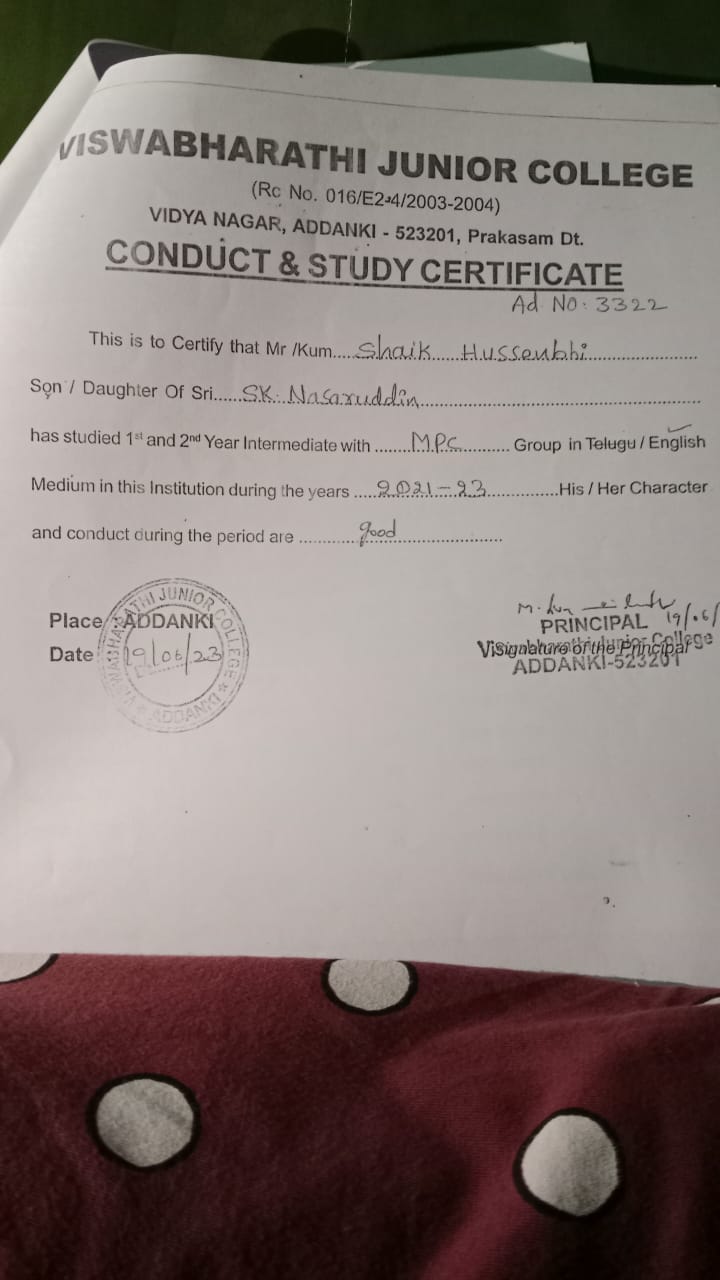 VISWABHARATHI JUNIOR COLLEGE
(Rc No. 016/E2-4/2003-2004)
VIDYA NAGAR, ADDANKI - 523201, Prakasam Dt.
CONDUCT & STUDY CERTIFICATE
Ad No: 3322
This is to Certify that Mr /Kum.....Shaik Hussenbhi.....
Son / Daughter Of Sri......SK. Nasaruddin.....
has studied 1st and 2nd Year Intermediate with .......M.P.C.......... Group in Telugu / English
Medium in this Institution during the years .....2021-23...............His / Her Character
and conduct during the period are ............good.....................
Place : ADDANKI
Date 19/06/23
VISWABHARATHI JUNIOR COLLEGE ADDANKI
19/06/
PRINCIPAL
Viswabharathi Junior College
Signature of the Principal
ADDANKI-523201